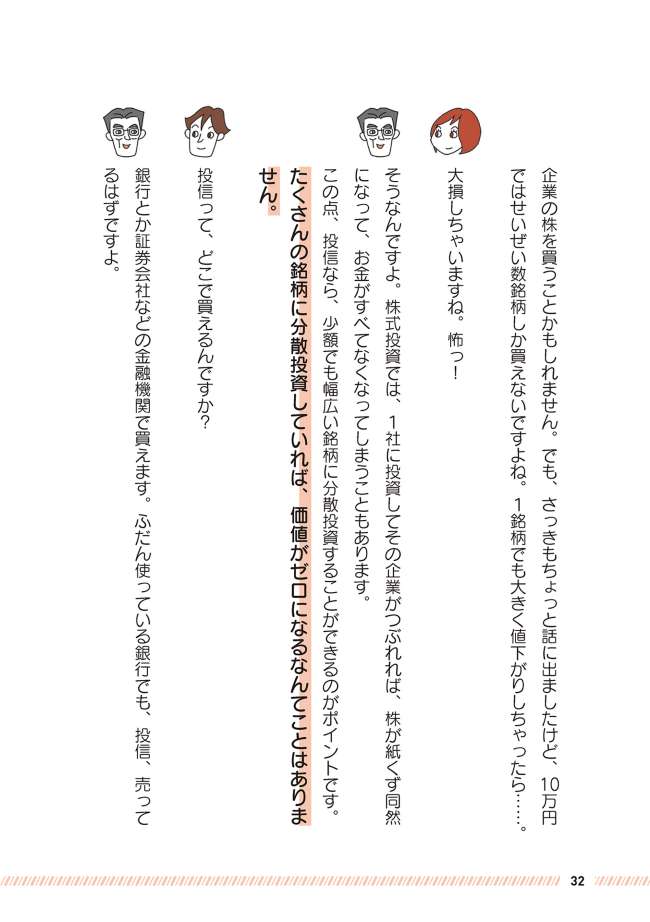 企業の株を買うことかもしれません。でも、さっきもちょっと話に出ましたけど、10万円
ではせいぜい数銘柄しか買えないですよね。1銘柄でも大きく値下がりしちゃったら……。
大損しちゃいますね。怖っ！
そうなんですよ。株式投資では、1社に投資してその企業がつぶれれば、株が紙くず同然
になって、お金がすべてなくなってしまうこともあります。
この点、投信なら、少額でも幅広い銘柄に分散投資することができるのがポイントです。
たくさんの銘柄に分散投資していれば、価値がゼロになるなんてことはありま
せん。
投信って、どこで買えるんですか？
銀行とか証券会社などの金融機関で買えます。ふだん使っている銀行でも、投信、売って
るはずですよ。
32